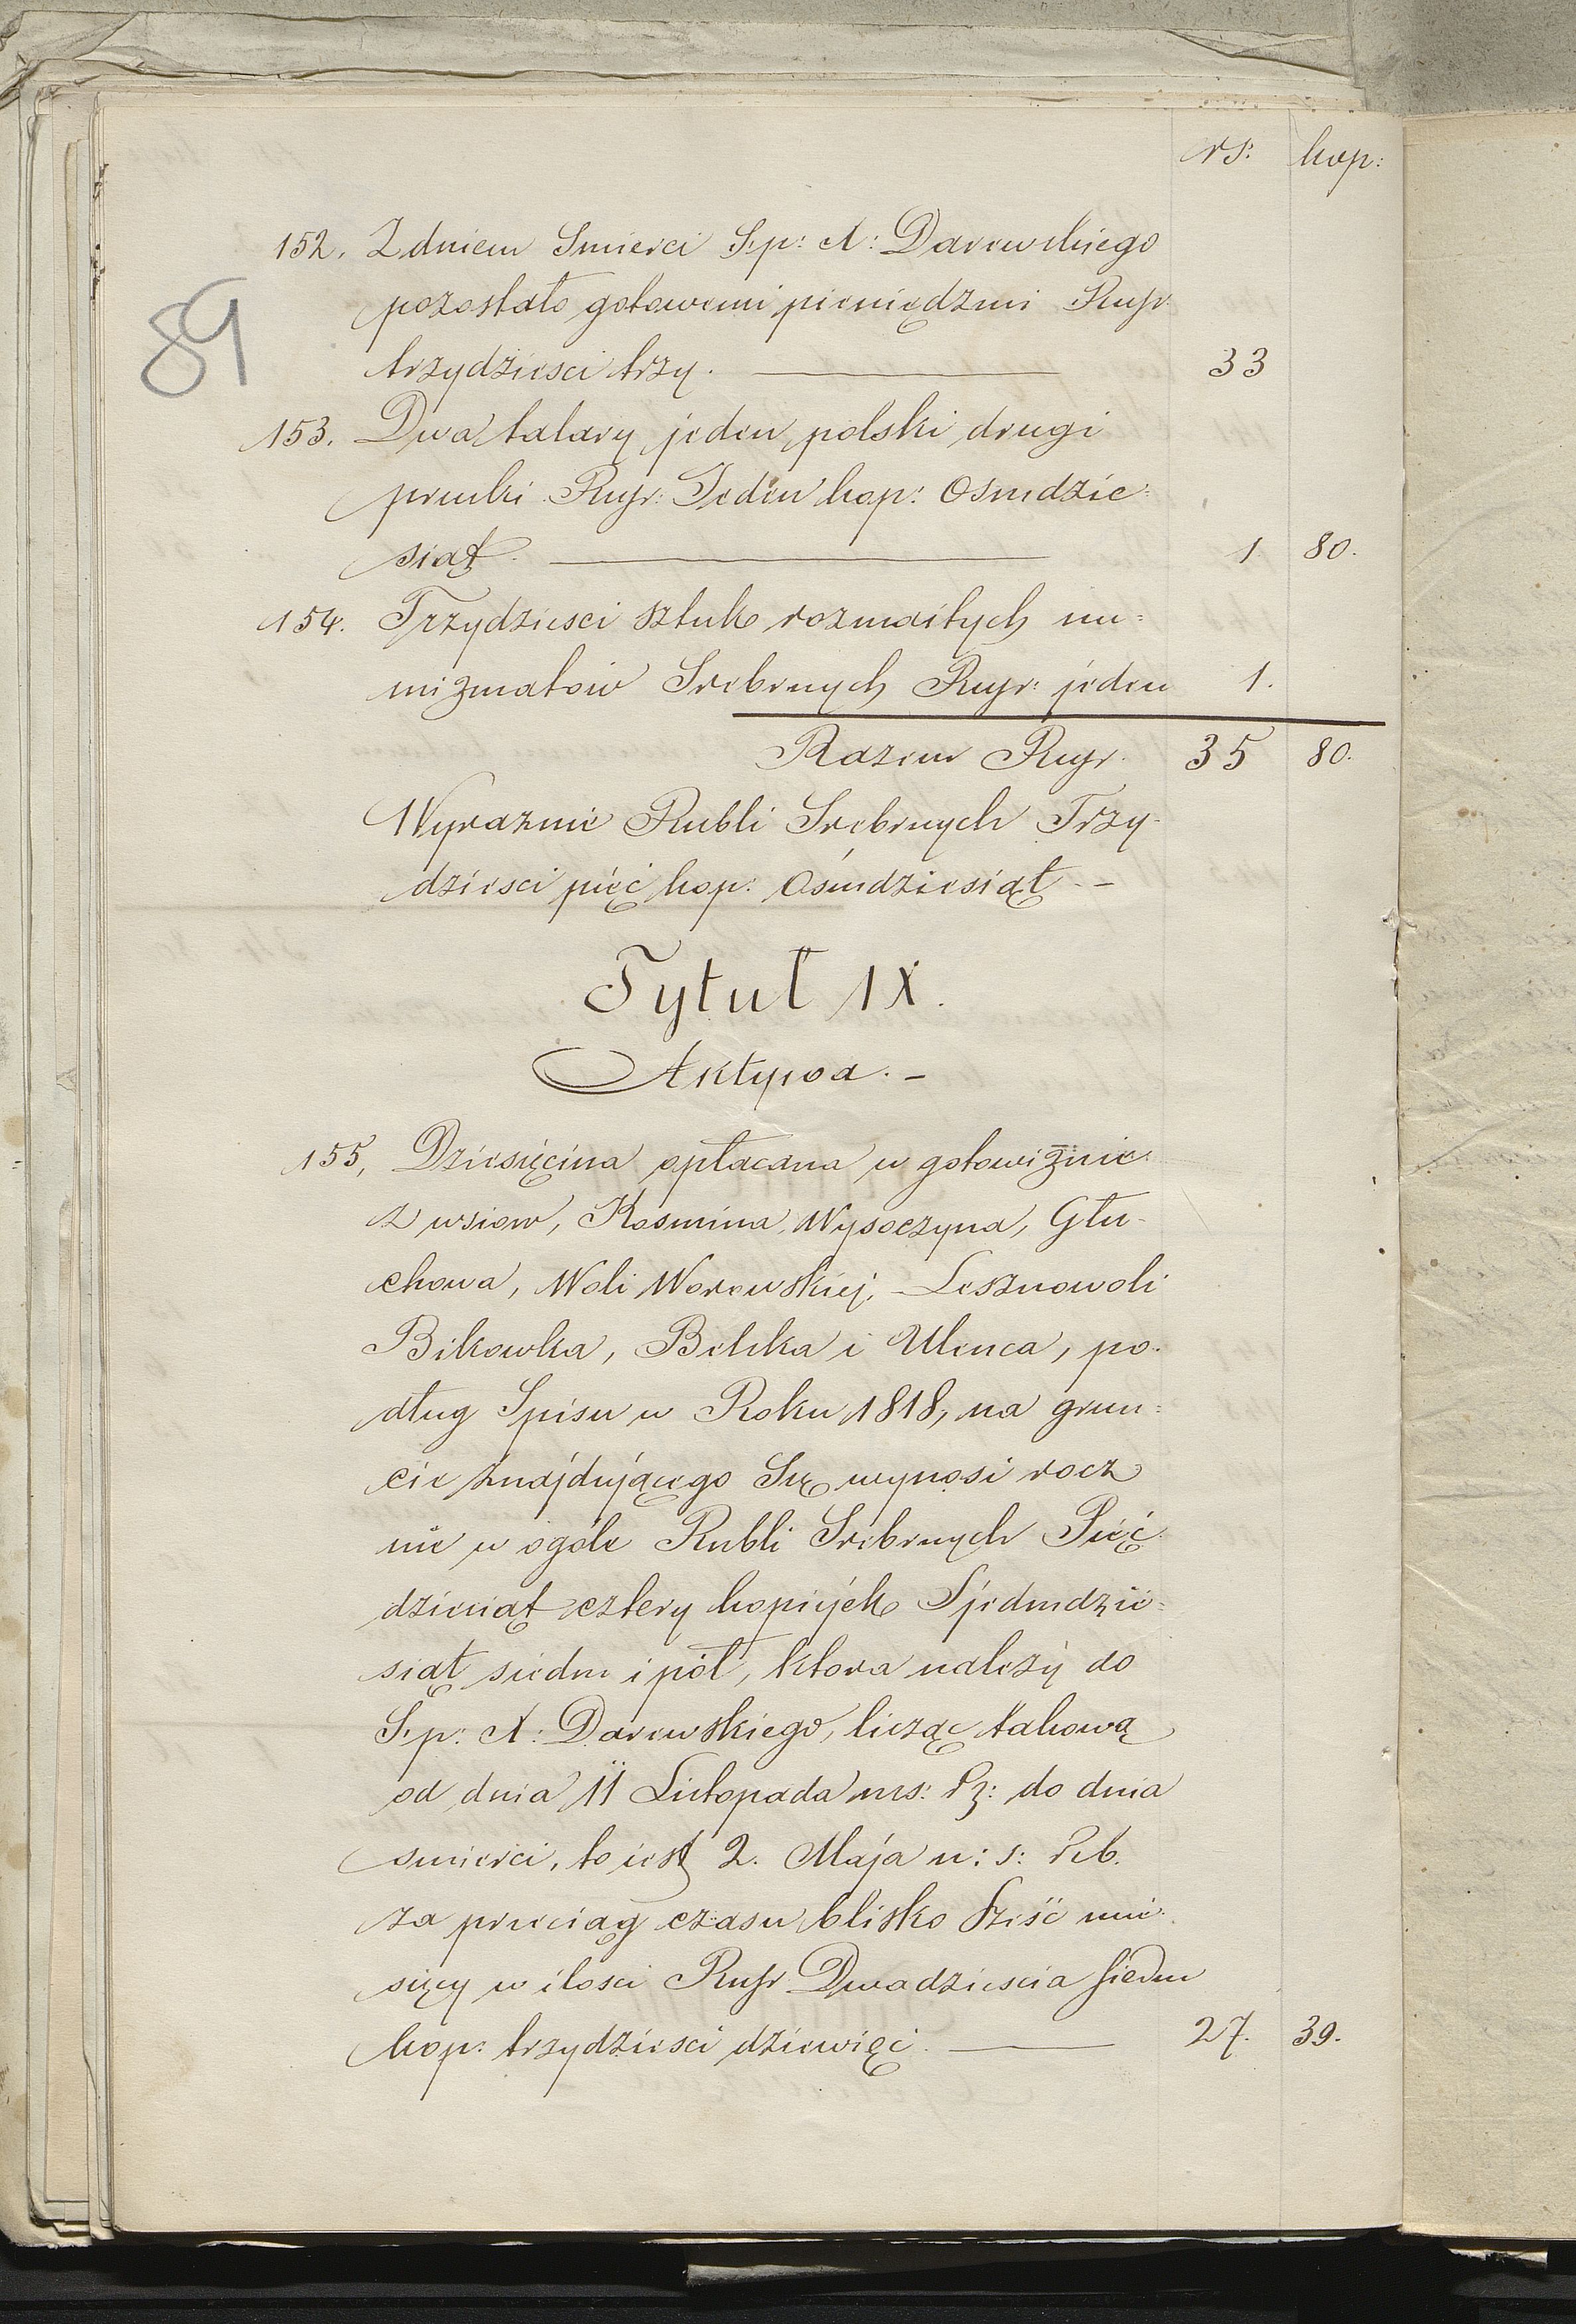 rs: kop:
152. Z dniem Smierci Ś.p: A: Darewskiego
pozostało gotowemi pieniędzmi Rusr.
trzydziesci trzy. 33
89
153. Dwa talary jeden polski drugi
pruski Rusr: Jeden kop: Osmdzie-
siąt. 1 80.
154. Trzydziesci sztuk rozmaitych nu=
mizmatów Srebrnych Rusr: jeden 1.
Razem Rusr. 35 80.
Wyraznie Rubli Srebrnych Trzy-
dziesci pięć kop: Ośmdziesiąt. -
Tytuł IX.
Aktywa. -
155, Dziesięcina opłacana w gotowiźnie
z wsiow, Kosmina, Wysoczyna, Głu-
chowa, Woli Worowskiej, Lesznowoli
Bikowka, Belska i Ulenca, po-
dług Spisu w Roku 1818, na grun=
cie znajdującego Się wynosi rocz
nie w ogóle Rubli Srebrnych Pięć
dziesiąt cztery kopiejek Sjedmdzie=
siąt siedm i pół, ktora należy do
Ś.p: A: Darewskiego, licząc takową
od dnia 11 Listopada ms: rz: do dnia
smierci, to iest 2. Maja n: s: r. b.
za przeciąg czasu blisko Sześć mie-
sięcy w ilosci Rusr Dwadziescia siedm
kop: trzydziesci dziewięć. 27. 39.